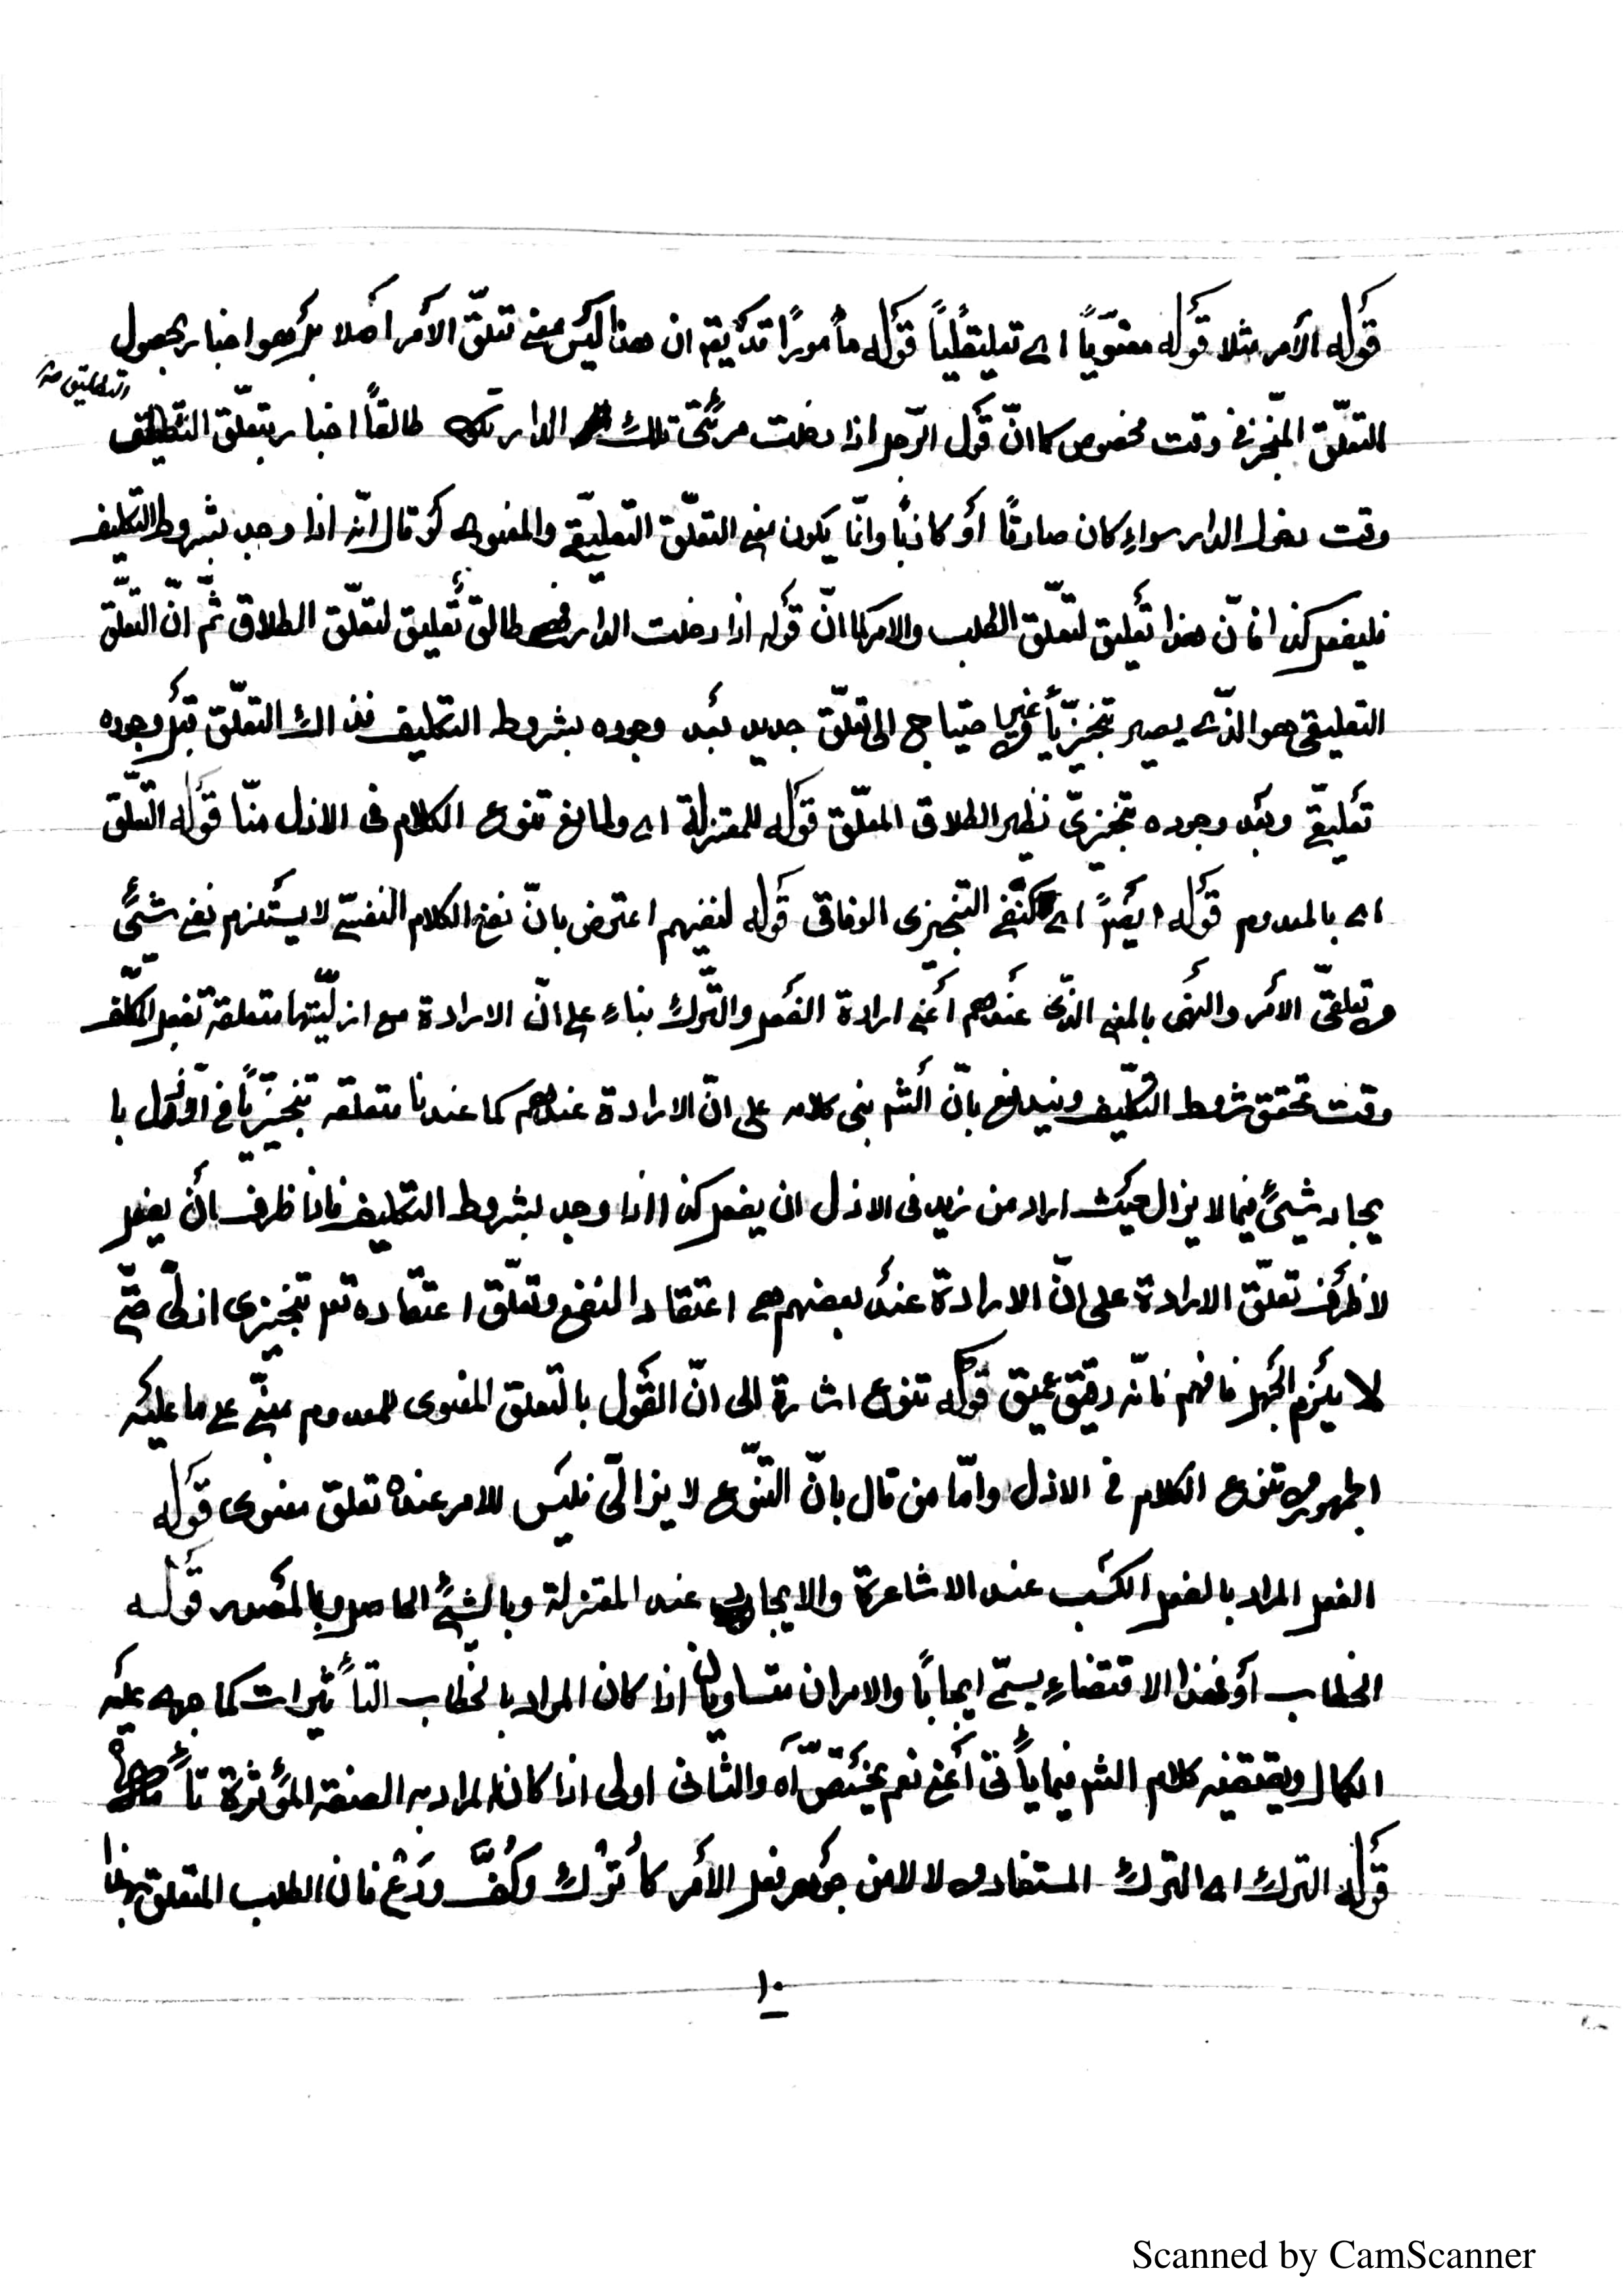 قوله الأمر مثلا قوله معنويّاً اى تعليقيّاً قوله مأموراً قد يقم ان هذا ليس معنى تعلّق الأمر أصلا بل هو اخبار بحصول
التعليق منه
التعلّق المنجّز فى وقت مخصوص كما انّ قول الرّجل اذا دخلت مرئتى تلك الدار تكن طالقاً اخبار بتعلّق
وقت دخول الدار سواء كان صادقاً أو كاذباً وانّما يكون معنى التعلّق التعليقى والمعنوى لو قال انّه اذا وجد بشروط التكليف
فليفعل كذا فانّ هذا تعليق لتعلّق الطلب والامر كما انّ قوله اذا دخلت الدار فهى طالق تعليق لتعلّق الطلاق ثمّ انّ التعلّق
التعليقى هو الذّى يصير تنجيزيّاً من غير احتياج الى تعلّق جديد بعد وجوده بشروط التكليف فذالك التعلّق قبل وجوده
تعليقىّ وبعد وجوده تنجيزىّ نظير الطلاق المعلّق قوله للمعتزلة اى ولمانع تنوع الكلام فى الازل منّا قوله التعلّق
اى بالمعدوم قوله ايضاً اى كنفى التنجيزى الوفاقى قوله لنفيهم اعترض بانّ نفى الكلام النفسىّ لا يستلزم نفى شيئ
من تعلقى الأمر والنهى بالمعنى الذى عندهم أعنى ارادة الفعل والتّرك بناء على انّ الارادة مع ازليّتها متعلقة بفعل المكلّف
وقت تحقق شروط التكليف ويندفع بانّ الشم بنى كلامه على انّ الارادة عندهم كما عندنا متعلقة تنجيزيّاً فى الازل با
يجاد شيئ فيما لا يزال بحيث اراد من زيد فى الازل ان يفعل كذا اذا وجد بشروط التكليف فاذا ظرف لأن يفعل
لا ظرف تعلّق الارادة على انّ الارادة عند بعضهم هى اعتقاد النفع وتعلّق اعتقاده تعم تنجيزى ازلىّ حتّى
لا يلزم الجهل فافهم فانّه دقيق عميق قوله تنوع اشارة الى انّ القول بالتعلق المعنوى للمعدوم مبنىّ على ما عليه
الجمهور من تنوع الكلام فى الازل وامّا من قال بانّ التنّوع لا يزالىّ فليس للامر عنده تعلق معنوى قوله
الفعل المراد بالفعل الكسب عند الاشاعرة والايجاد عند المعتزلة وبالشيئ الحاصل بالمصدر قوله
الخطاب أو فهذا الاقتضاء يسمّى ايجاباً والامران متساويان اذا كان المراد بالخطاب التأثيرات كما جرى عليه
الكمال ويقتضيه كلام الشم فيما يأتى أعنى نعم يختصّ آه والثانى اولى اذا كان المراد به الصفة المؤثرة
قوله الترك اى الترك المستفاد من لا لا من جوهر فعل الأمر كأترك وكفّ ودع فان الطلب المتعلق بهذا
١٠
Scanned by CamScanner